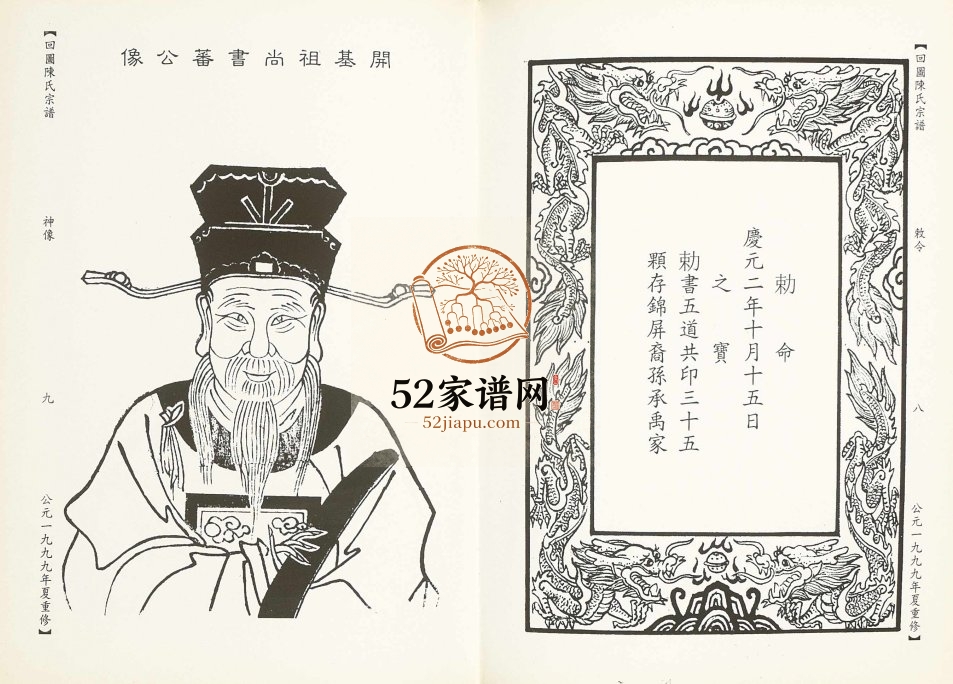 【回圖陳氏宗譜
敕令
八
公元一九九九年夏重修】
勅命
慶元二年十月十五日
之寶
勅書五道共印三十五
顆存錦屏裔孫承禹家
開基祖尚書蕃公像
【回圖陳氏宗譜
神像
九
公元一九九九年夏重修】
52家谱网
52jiapu.com